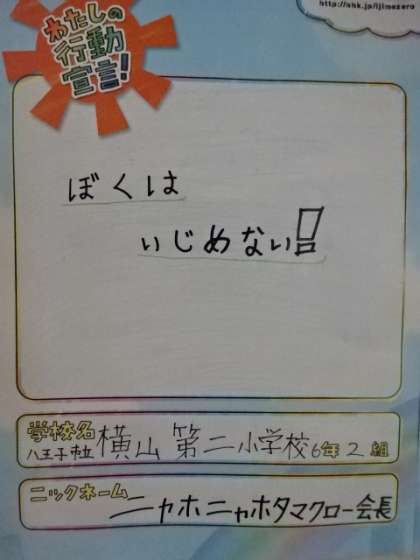 http://nhk.jp/ijimezero
わたしの
行動
宣言!
ぼくは
いじめない!
学校名
八王子市立 横山第二小学校6年2組
ニックネーム
ニャホニャホタマクロー会長